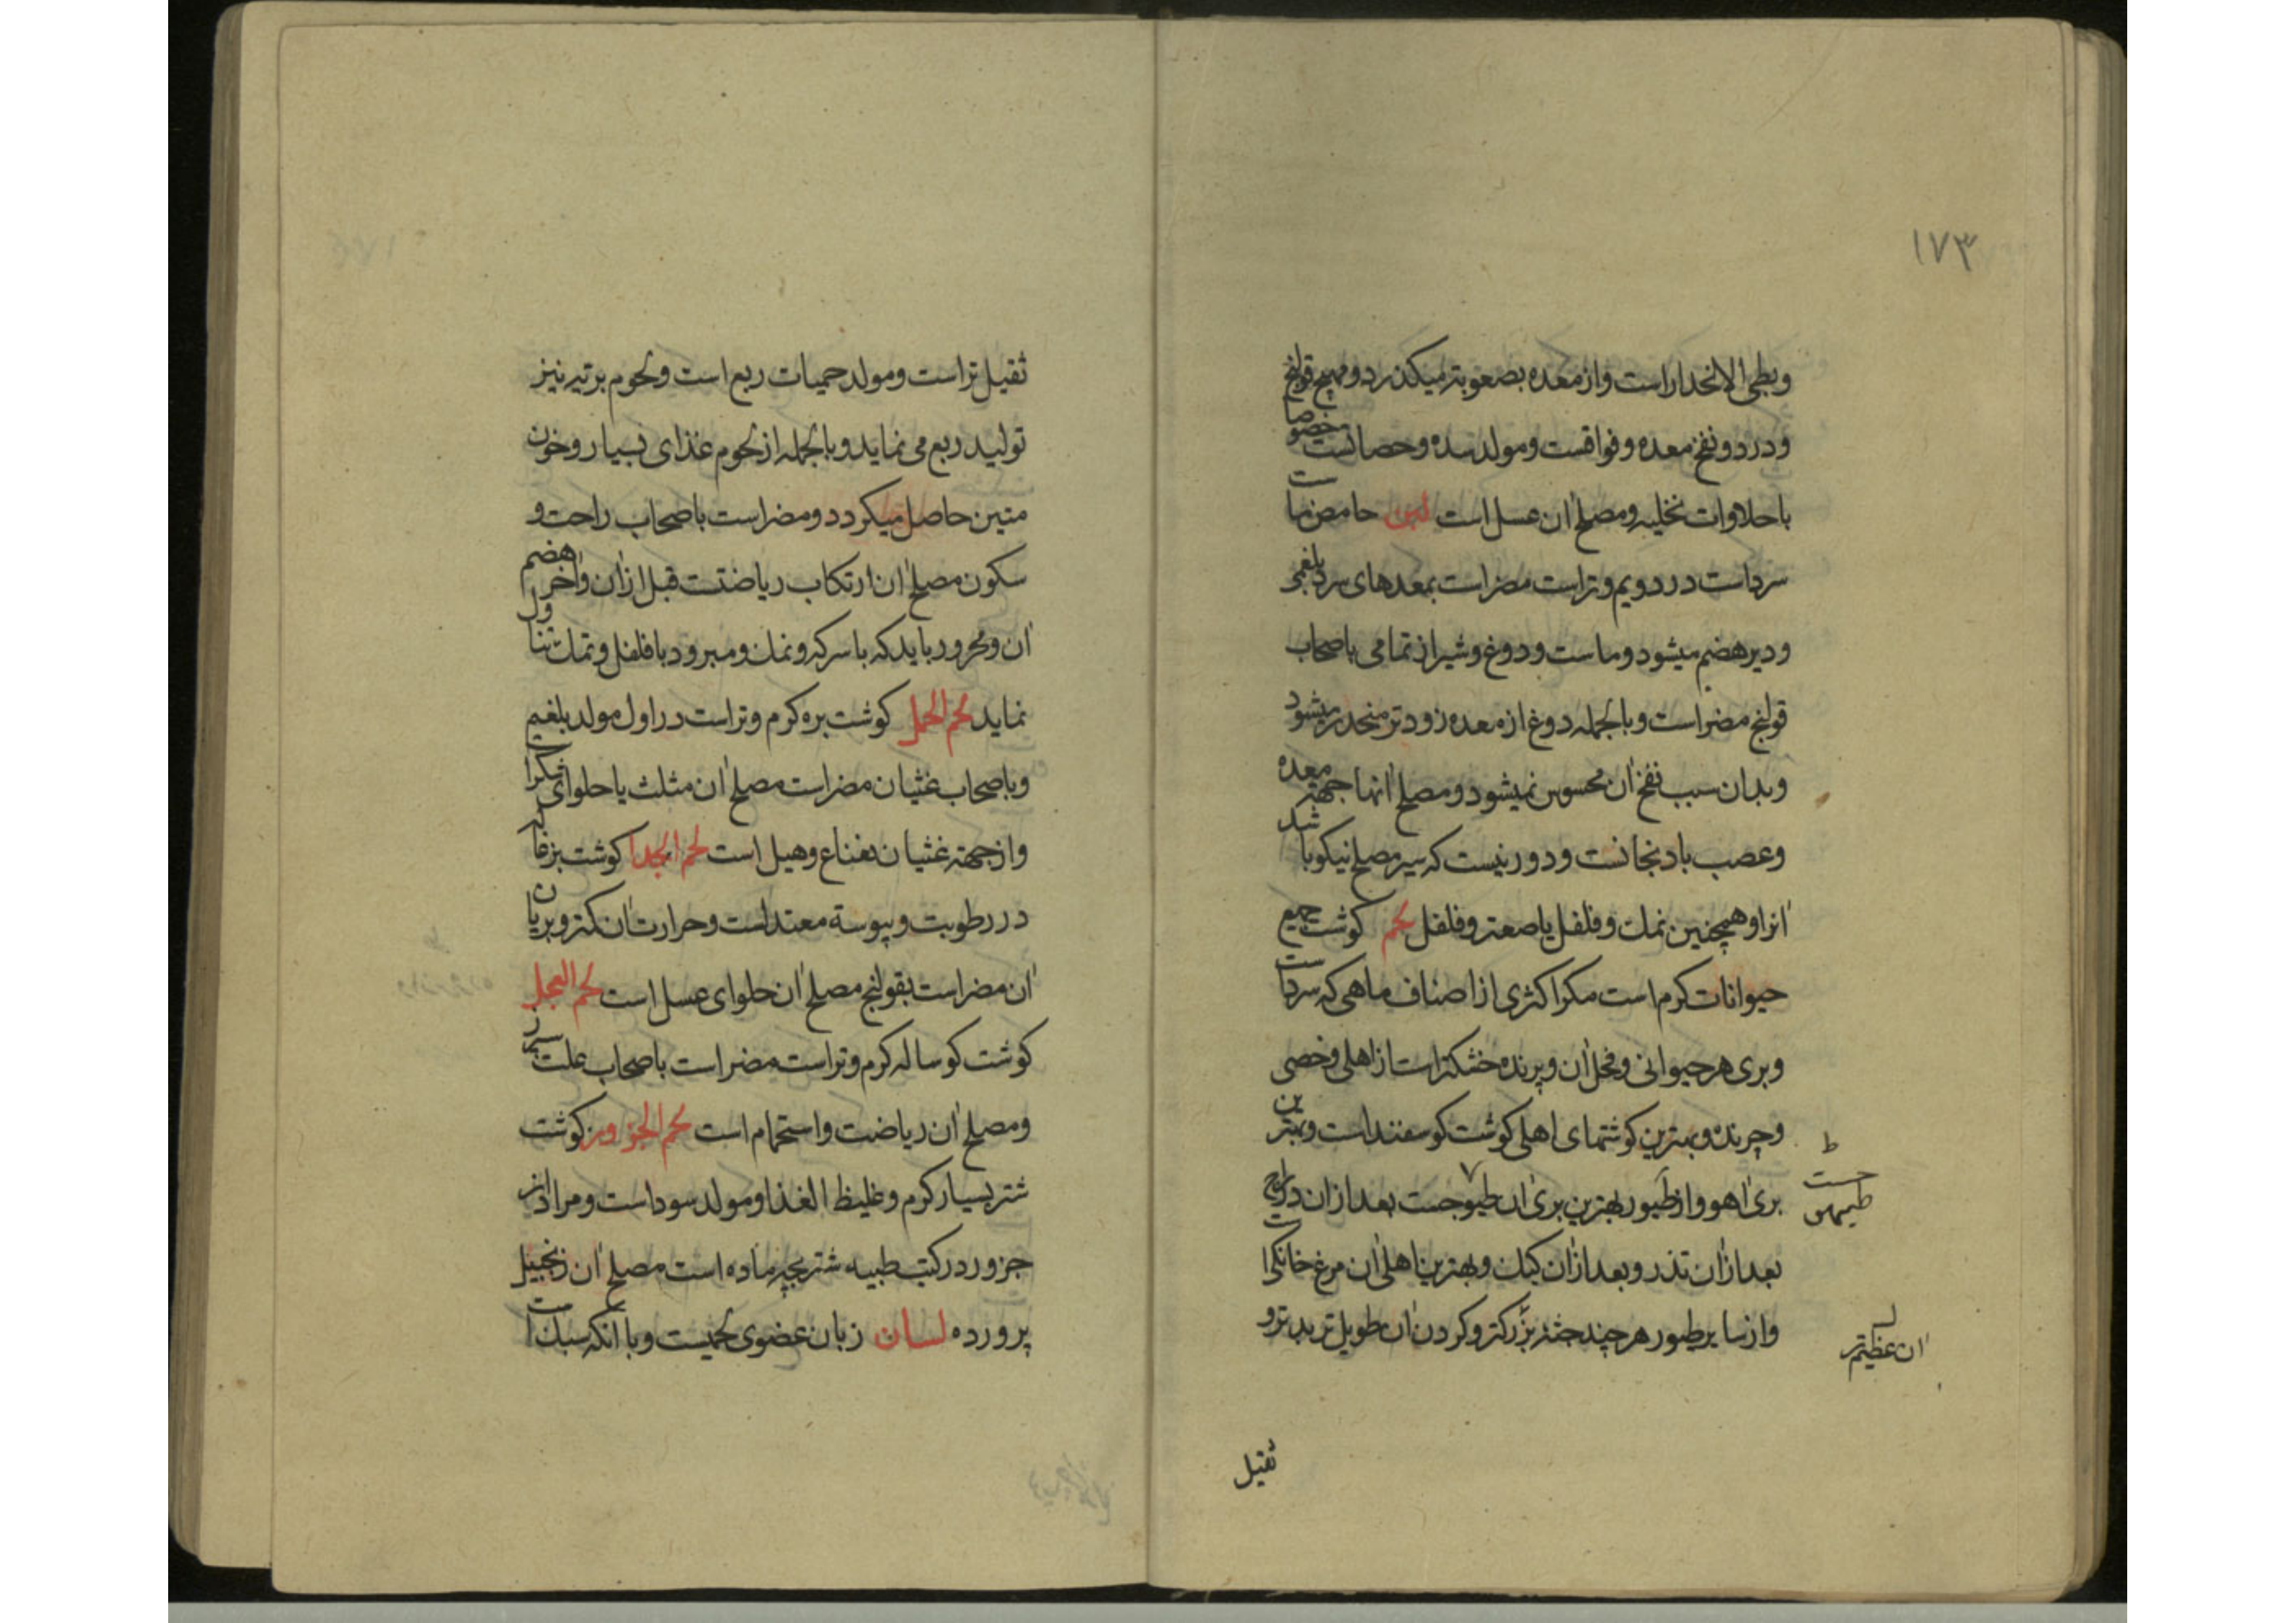 ١٧٣
وبطی الانحدار است واز معده بصعوبتر میکذرد ومهیج قولنج
ودرد ونفخ معده وفواقست ومولد سده وحصاتست خصوصا
با حلاوات نخلیه ومصلح آن عسل است لبن حامض ماست
سرد است در دویم وتر است مضر است بمعدهای سرد بلغمی
ودیر هضم میشود وماست ودوغ وشیراز تمامی باصحاب
قولنج مضر است وبالجمله دوغ از معده زودتر منحدر میشود
وبدان سبب نفخ آن محسوس نمیشود ومصلح آنها جهته معده
وعصب بادنجانست ودور نیست که سیر مصلح نیکو باشد
آنرا وهمچنین نمک وفلفل یا صعتر وفلفل لحم کوشت جمیع
حیوانات کرم است مکر اکثری از اصناف ماهی که سرد است
وبری هر حیوانی وفحل آن وپرنده خشکتر است از اهلی وخصی
وچرنده وبهترین کوشتهای اهلی کوشت کوسفند است وبهترین
بری آهو واز طیور بهترین بری آن طیوجست بعد از آن دراج
ط
حست
طیهو
بعد از آن تذرو بعد از آن کبک وبهترین اهلی آن مرغ خانکی است
واز سایر طیور هر چند جثه بزرکتر وکردن آن طویل تر بدتر و
آن عظیم‌تر
ثقیل
ثقیل تر است ومولد حمیات ربع است ولحوم برتیه نیز
تولید ربع می نماید وبالجمله از لحوم غذای بسیار وخون
متین حاصل میکردد ومضر است باصحاب راحت و
سکون مصلح آن ارتکاب ریاضتست قبل از آن وآخر هضم
آن ومحرور باید که با سرکه ونمک ومبرود با فلفل ونمک تناول
نماید لحم الحمل کوشت بره کرم وتر است در اول مولد بلغم
وباصحاب غثیان مضر است مصلح آن مثلث یا حلوای شکر است
واز جهته غثیان نعناع وهیل است لحم الجدا کوشت بزغاله
در رطوبت ویبوسة معتدلست وحرارت آن کمتر وبریان
آن مضر است بقولنج مصلح آن حلوای عسل است لحم العجل
کوشت کوساله کرم وتر است مضر است باصحاب علت سپرز
ومصلح آن ریاضت واستحمام است لحم الجزور کوشت
شتر بسیار کرم وغلیظ الغذا ومولد سوداست ومراد از
جزور در کتب طبیه شتر بچه ماده است مصلح آن زنجبیل
پرورده لسان زبان عضوی لحمیست وبا آنکه سبک است